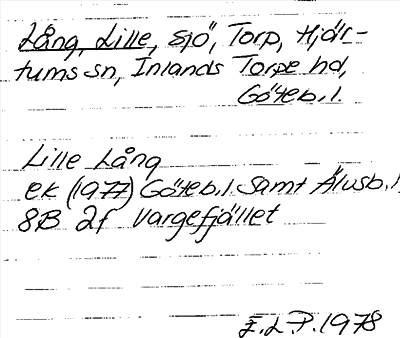 Lång, Lille, sjö, Torp, Hjär-
tums sn, Inlands Torpe hd,
Göteb. l.
Lille Lång
ek (1977) Göteb. l. samt Älvsb. l
8B 2f Vargefjället
E. L. P. 1978